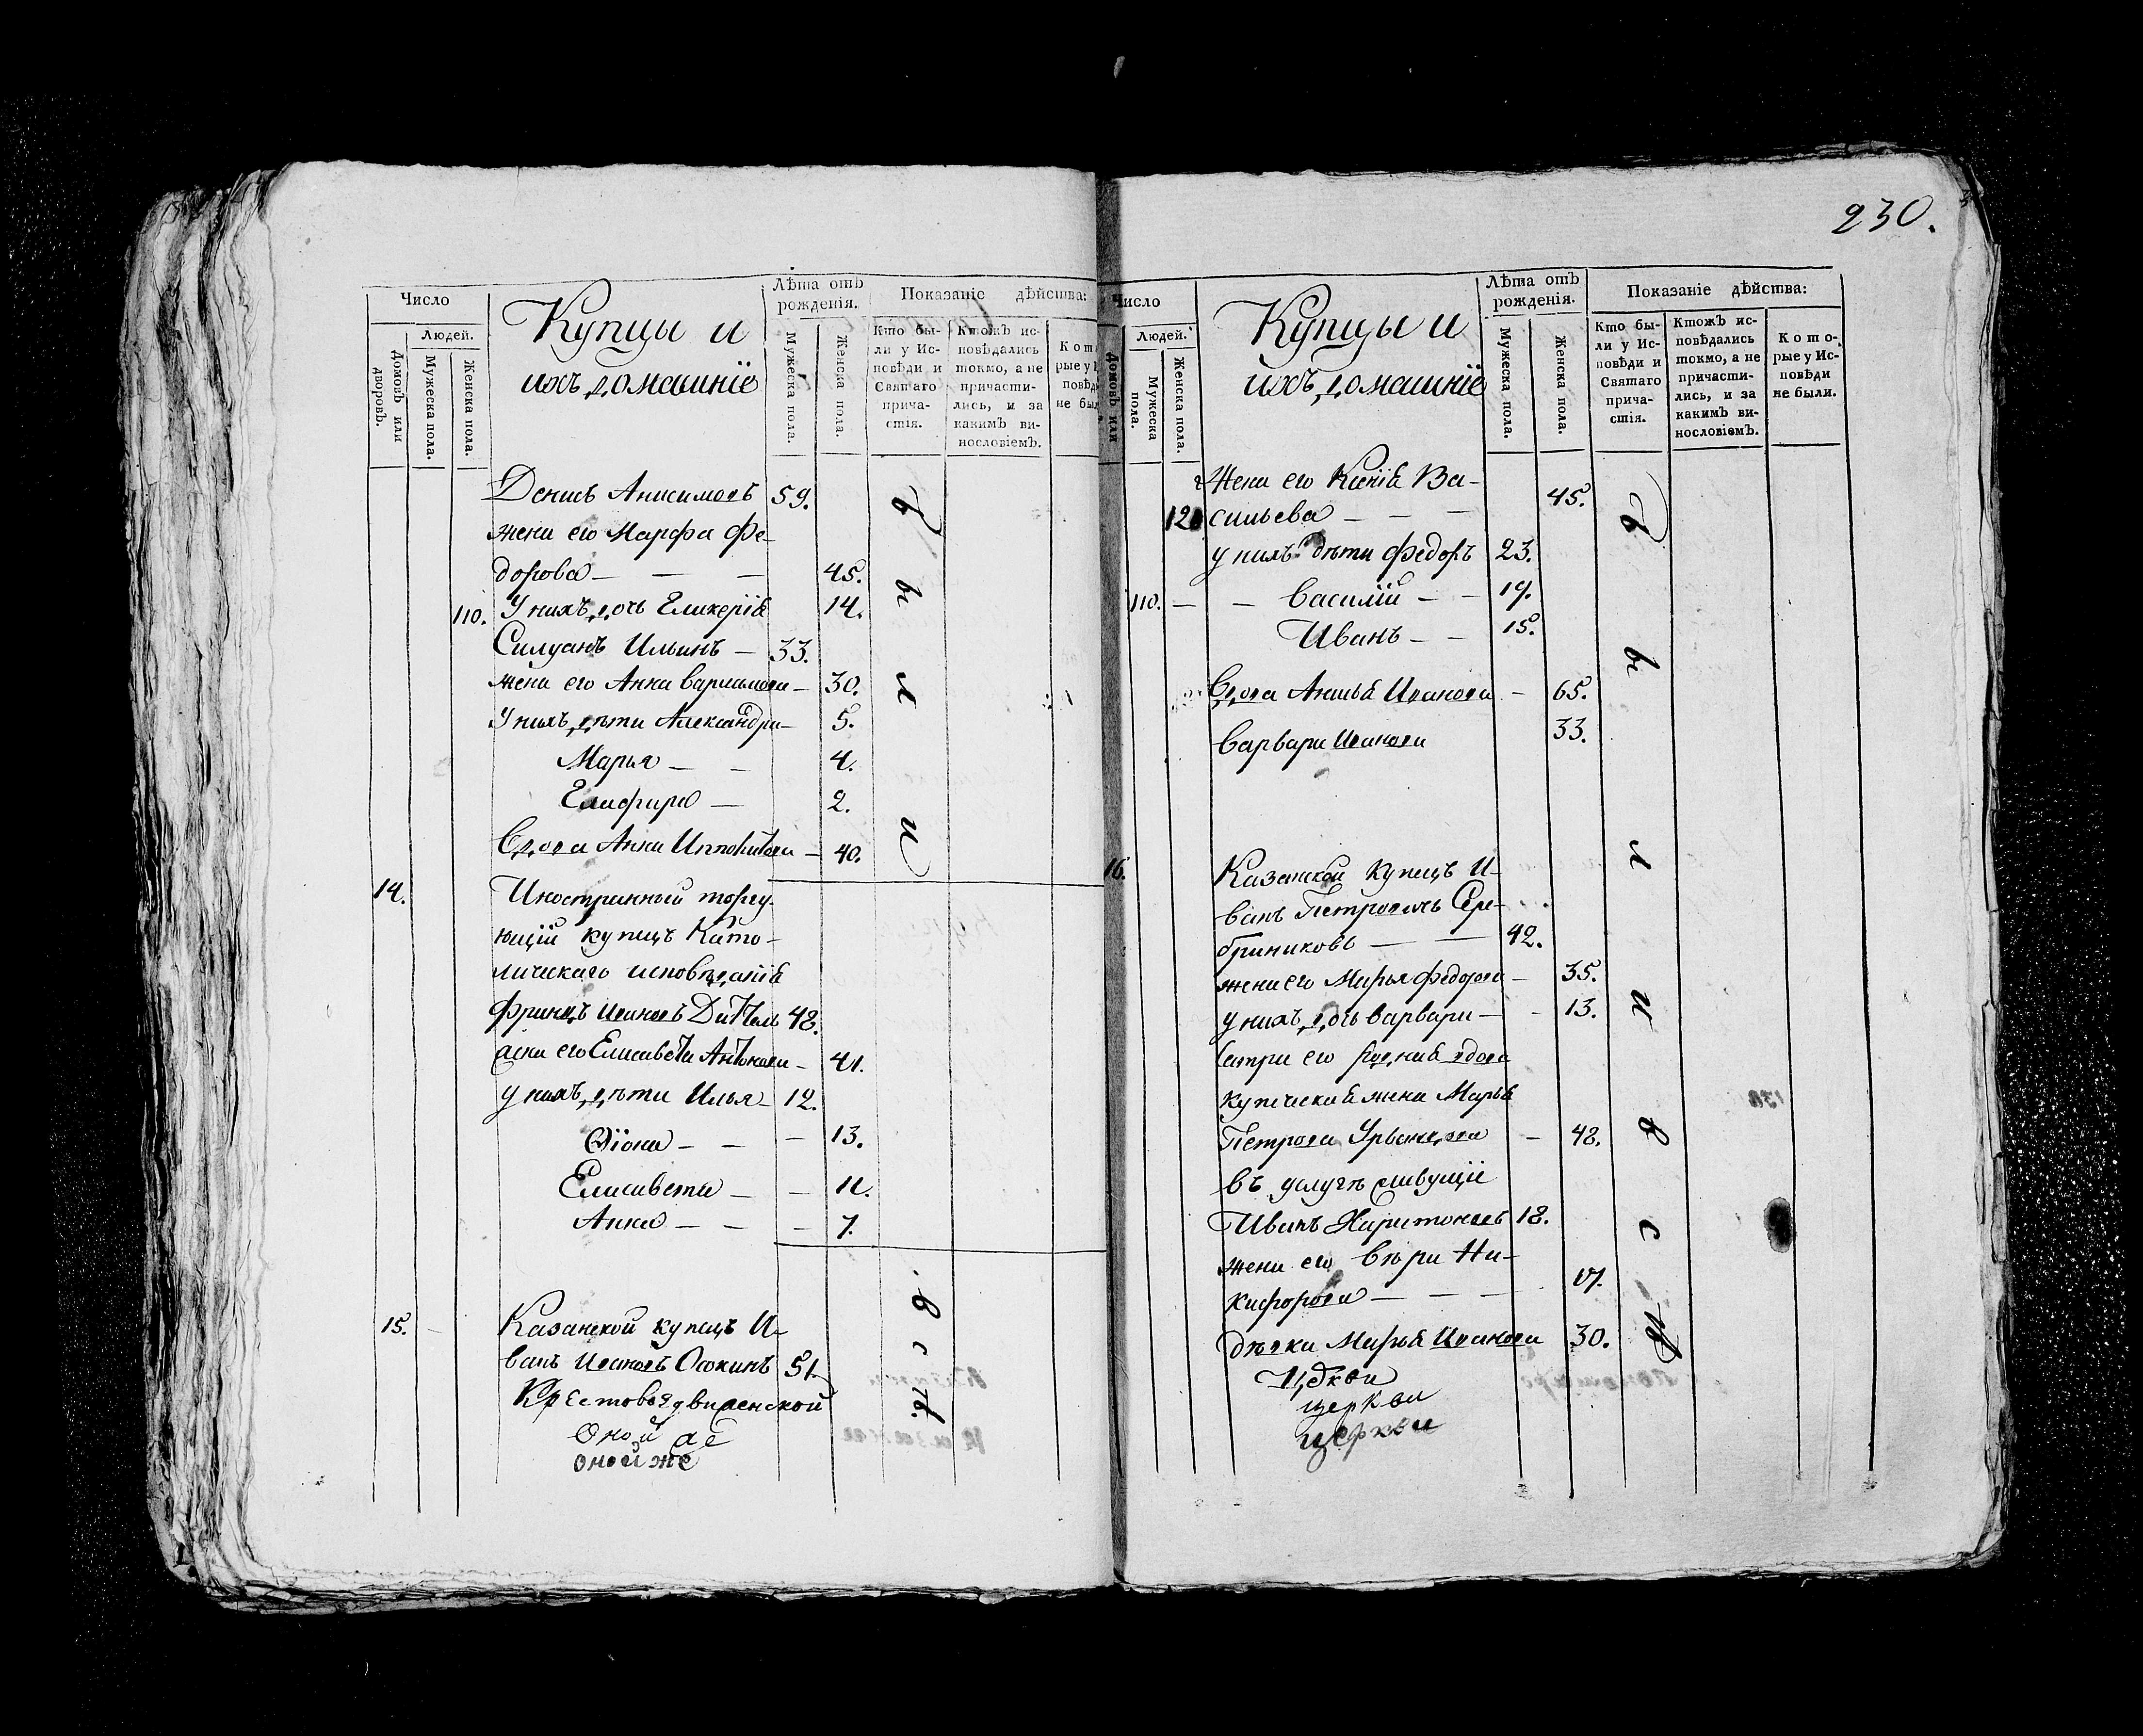 230.
Число
Людей.
Домовъ или дворовъ.
Мужеска пола.
Женска пола.
Купцы и
ихъ домашніе
Лѣта отъ
рожденія.
Мужеска пола.
Женска пола.
Показаніе дѣйства:
Кто бы-
ли у Ис-
повѣди и
Святаго
прича-
стія.
Ктожъ ис-
повѣдались
токмо, а не
причасти-
лись, и за
какимъ ви-
нословіемъ.
Денисъ Анисимовъ 59.
жена его Марфа Фе-
дорова — — — 45.
110. У нихъ дочь Гликерія 14.
Силуанъ Ильинъ — 33.
жена его Анна Варламова — 30.
У нихъ дѣти Александра — 5.
Марья — — 4.
Глафира — 2.
Вдова Анна Ипполитова — 40.
были
14. Иностранный торгу-
ющій купецъ Като-
лическаго исповѣданія
Францъ Ивановъ 48.
жена его Елисавета Антонова — 41.
у нихъ дѣти Илья — 12.
— — — 13.
Елисавета — — 11.
Анна — — — 7.
15. Казанской купецъ И-
ванъ Ивановъ Осокинъ 51.
Крестовоздвиженской
Оной же
оной же
в с ѣ.
Число
Людей.
Домовъ или
Мужеска пола.
Женска пола.
Купцы и
ихъ домашніе
Лѣта отъ
рожденія.
Мужеска пола.
Женска пола.
Показаніе дѣйства:
Кто бы-
ли у Ис-
повѣди и
Святаго
прича-
стія.
Ктожъ ис-
повѣдались
токмо, а не
причасти-
лись, и за
какимъ ви-
нословіемъ.
Кото-
рые у Ис-
повѣди
не были.
Жена его Ксенія Ва- 45.
120 сильева — — —
у нихъ дѣти Федоръ 23.
110. — — Василій — — 19.
Иванъ — — 15.
Вдова Анисья Иванова — 65.
Варвара Иванова 33.
16. Казанской купецъ И-
ванъ Петровичъ Сере-
бряниковъ — — 42.
жена его Марья Федорова — 35.
у нихъ дочь Варвара — — 13.
сестра его родная вдова
купеческая жена Марья
Петрова — 48.
въ услугѣ живущіе
Иванъ Харитоновъ 18.
жена его Вѣра Ни-
кифорова — — — 17.
дѣвка Марья Иванова 30.
Церкви
церкви
церкви
были всѣ